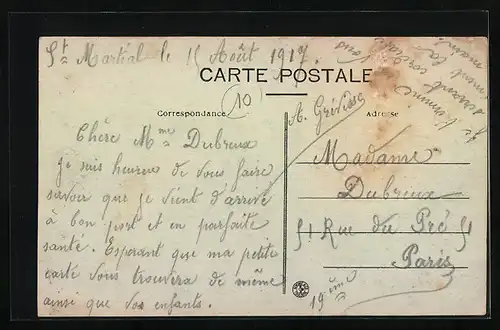 St Martial le 15 Août 1917.
CARTE POSTALE
10
Correspondance
Adresse
A. Grévisse
Chère Mme Dubreux
je suis heureux de vous faire
savoir que je vient d'arrivé
à bon port et en parfaite
santé. Esperant que ma petite
carte vous trouvera de même
ainsi que vos enfants.
Madame
Dubreux
51 Rue du Pré 51
Paris
19ème
Je termine
serrant
la
main